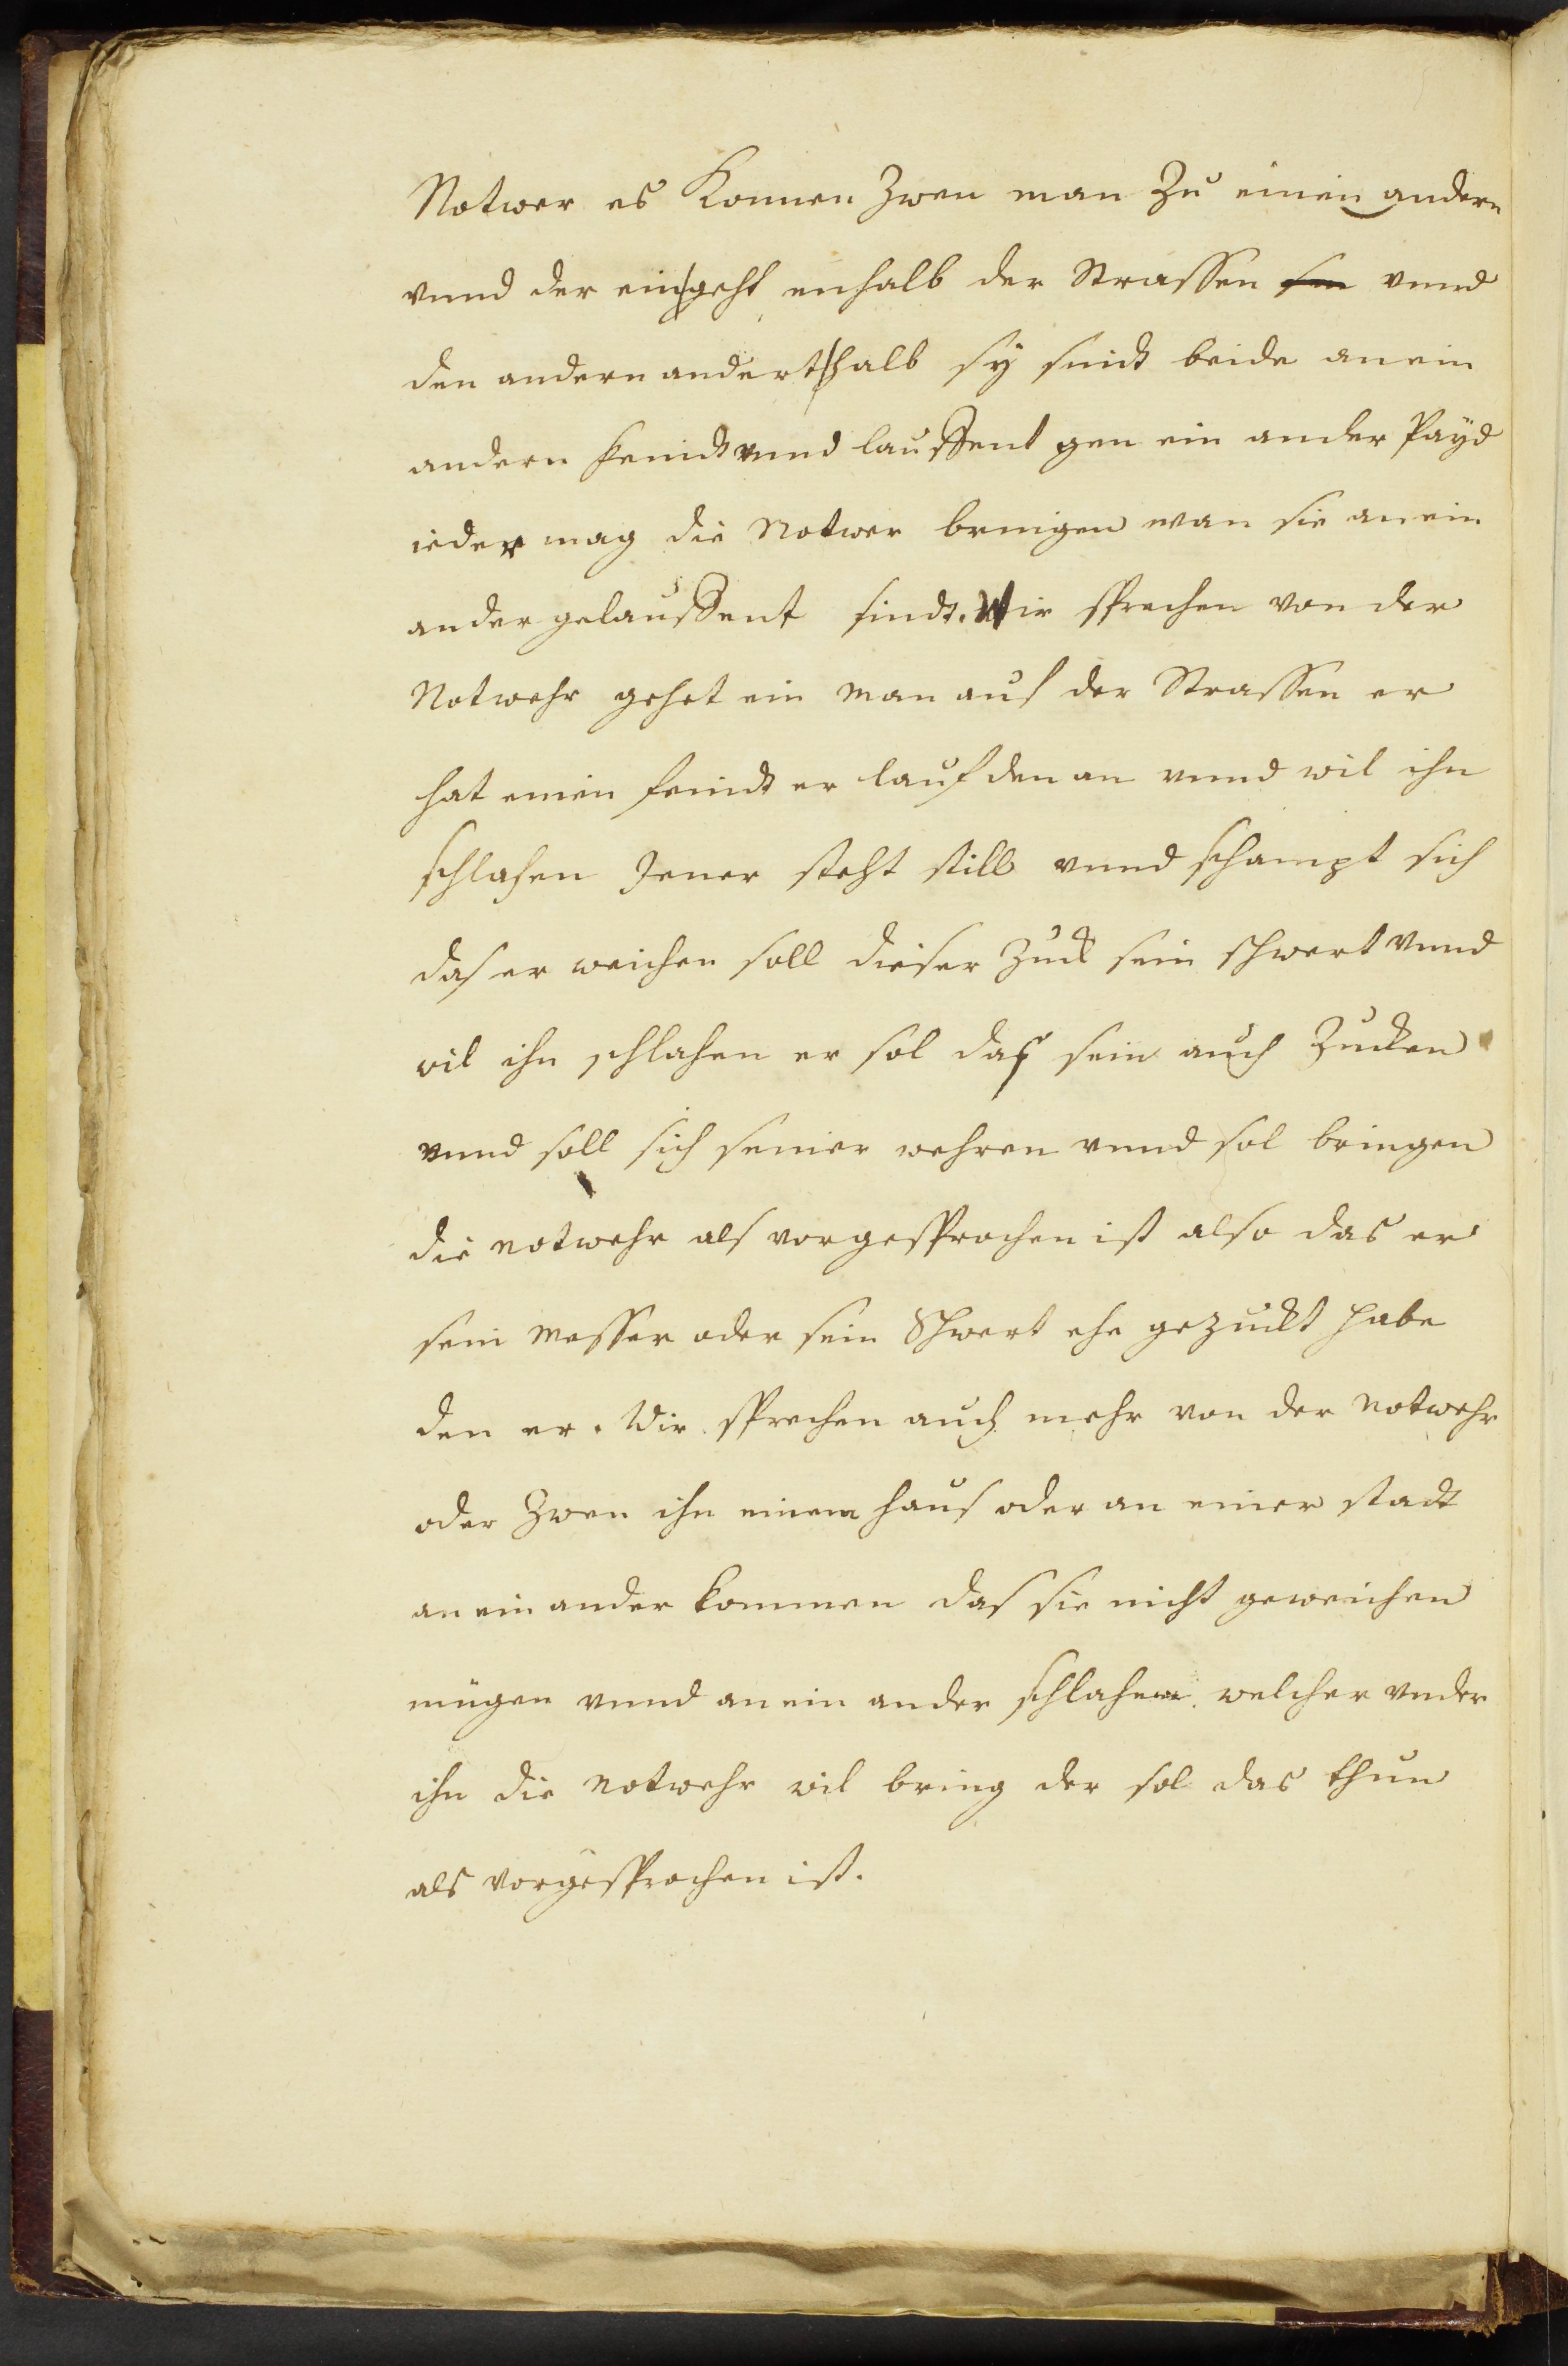 Notwer es Kommen Zwen man Zu einen andern
vnnd der ein geht enhalb der Strassen vnnd
den andern anderthalb sÿ sindt beide an ein
andern feindt vnnd laussent gen ein ander Paÿd
ieder mag die Notwer bringen wan sie an ein
ander gelaussent sindt. Wir sprechen von der
Notwehr gehet ein man auf der Strassen er
hat einen feindt er lauf den an vnnd wil ihn
schlahen Jener steht still vnnd schampt sich
das er weichen soll dieser Zuck sein schwert vnnd
wil ihn schlahen er sol das sein auch Zucken
vnnd soll sich seiner wehren vnnd sol bringen
die notwehr als vorgesprochen ist also das er
sein messer oder sein Schwert ehe gezuckt habe
den er. Wir sprechen auch mehr von der notwehr
oder Zwen ihn einem haus oder an einer stadt
an ein ander kommen das sie nicht geweichen
mügen vnnd an ein ander schlahen welcher vnder
ihn die notwehr wil bring der sol das thun
als vorgesprochen ist.